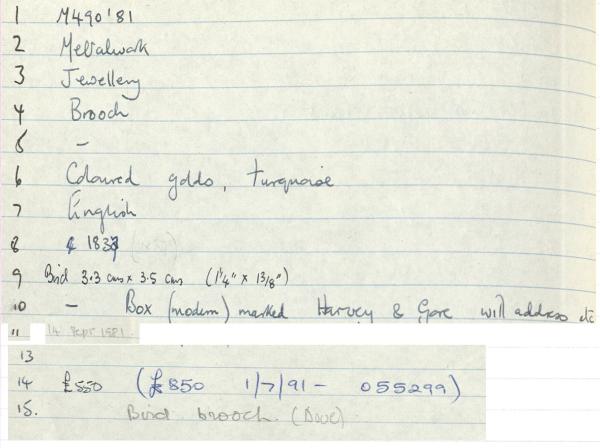 1 M490'81
2 Metalwork
3 Jewellery
4 Brooch
5 -
6 Coloured golds, turquoise
7 English
8 183
9 Bird 3.3 cms x 3.5 cms (1¼" x 1 3/8")
10 - Box (modern) marked Harvey & Gore with address etc
11 14 Sept 1981.
13
14 £550 (£850 1/7/91 - 055299)
15. Bird brooch. (Dove)